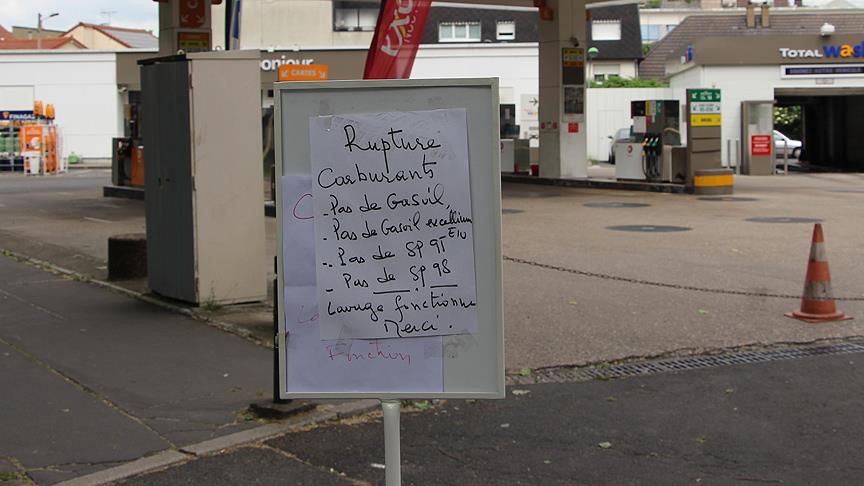 bonjour
CARTES
TOTAL wash
FINAGAZ
Rupture
Carburants
- Pas de Gasoil,
- Pas de Gasoil excellium
- Pas de SP 95 E10
- Pas de SP 98
Lavage fonctionne
Merci.
Fonction